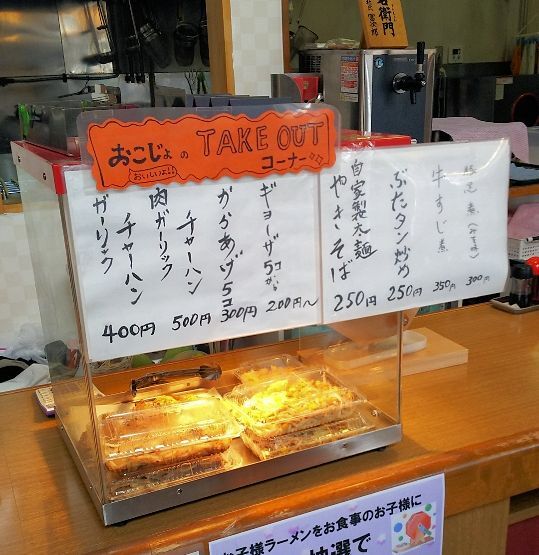 衛門
おこじょの TAKE OUT
コーナー
おいしいよ!!
豚足煮(みそ味)
300円
牛すじ煮
350円
ぶたタン炒め
250円
自家製太麺
やきそば
250円
ギョーザ5コから
200円〜
からあげ5コ
300円
肉ガーリック
チャーハン
500円
ガーリック
チャーハン
400円
お子様ラーメンをお食事のお子様に
抽選で